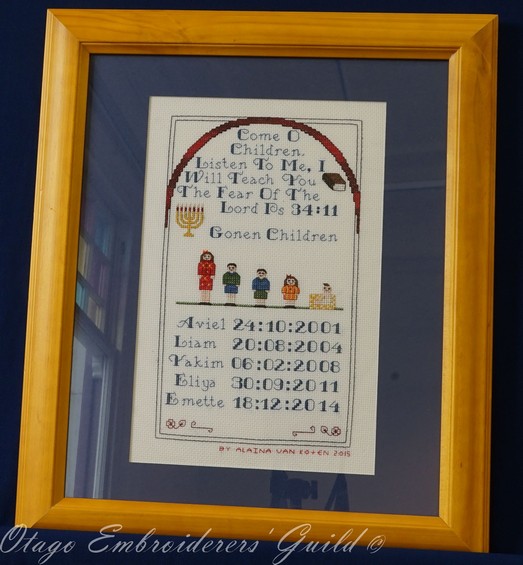 Come O
Children.
Listen To Me, I
Will Teach You
The Fear Of The
Lord Ps 34:11
Gonen Children
Aviel 24:10:2001
Liam 20:08:2004
Yakim 06:02:2008
Eliya 30:09:2011
Emette 18:12:2014
BY ALAINA VAN KOTEN 2015
Otago Embroiderers' Guild ©